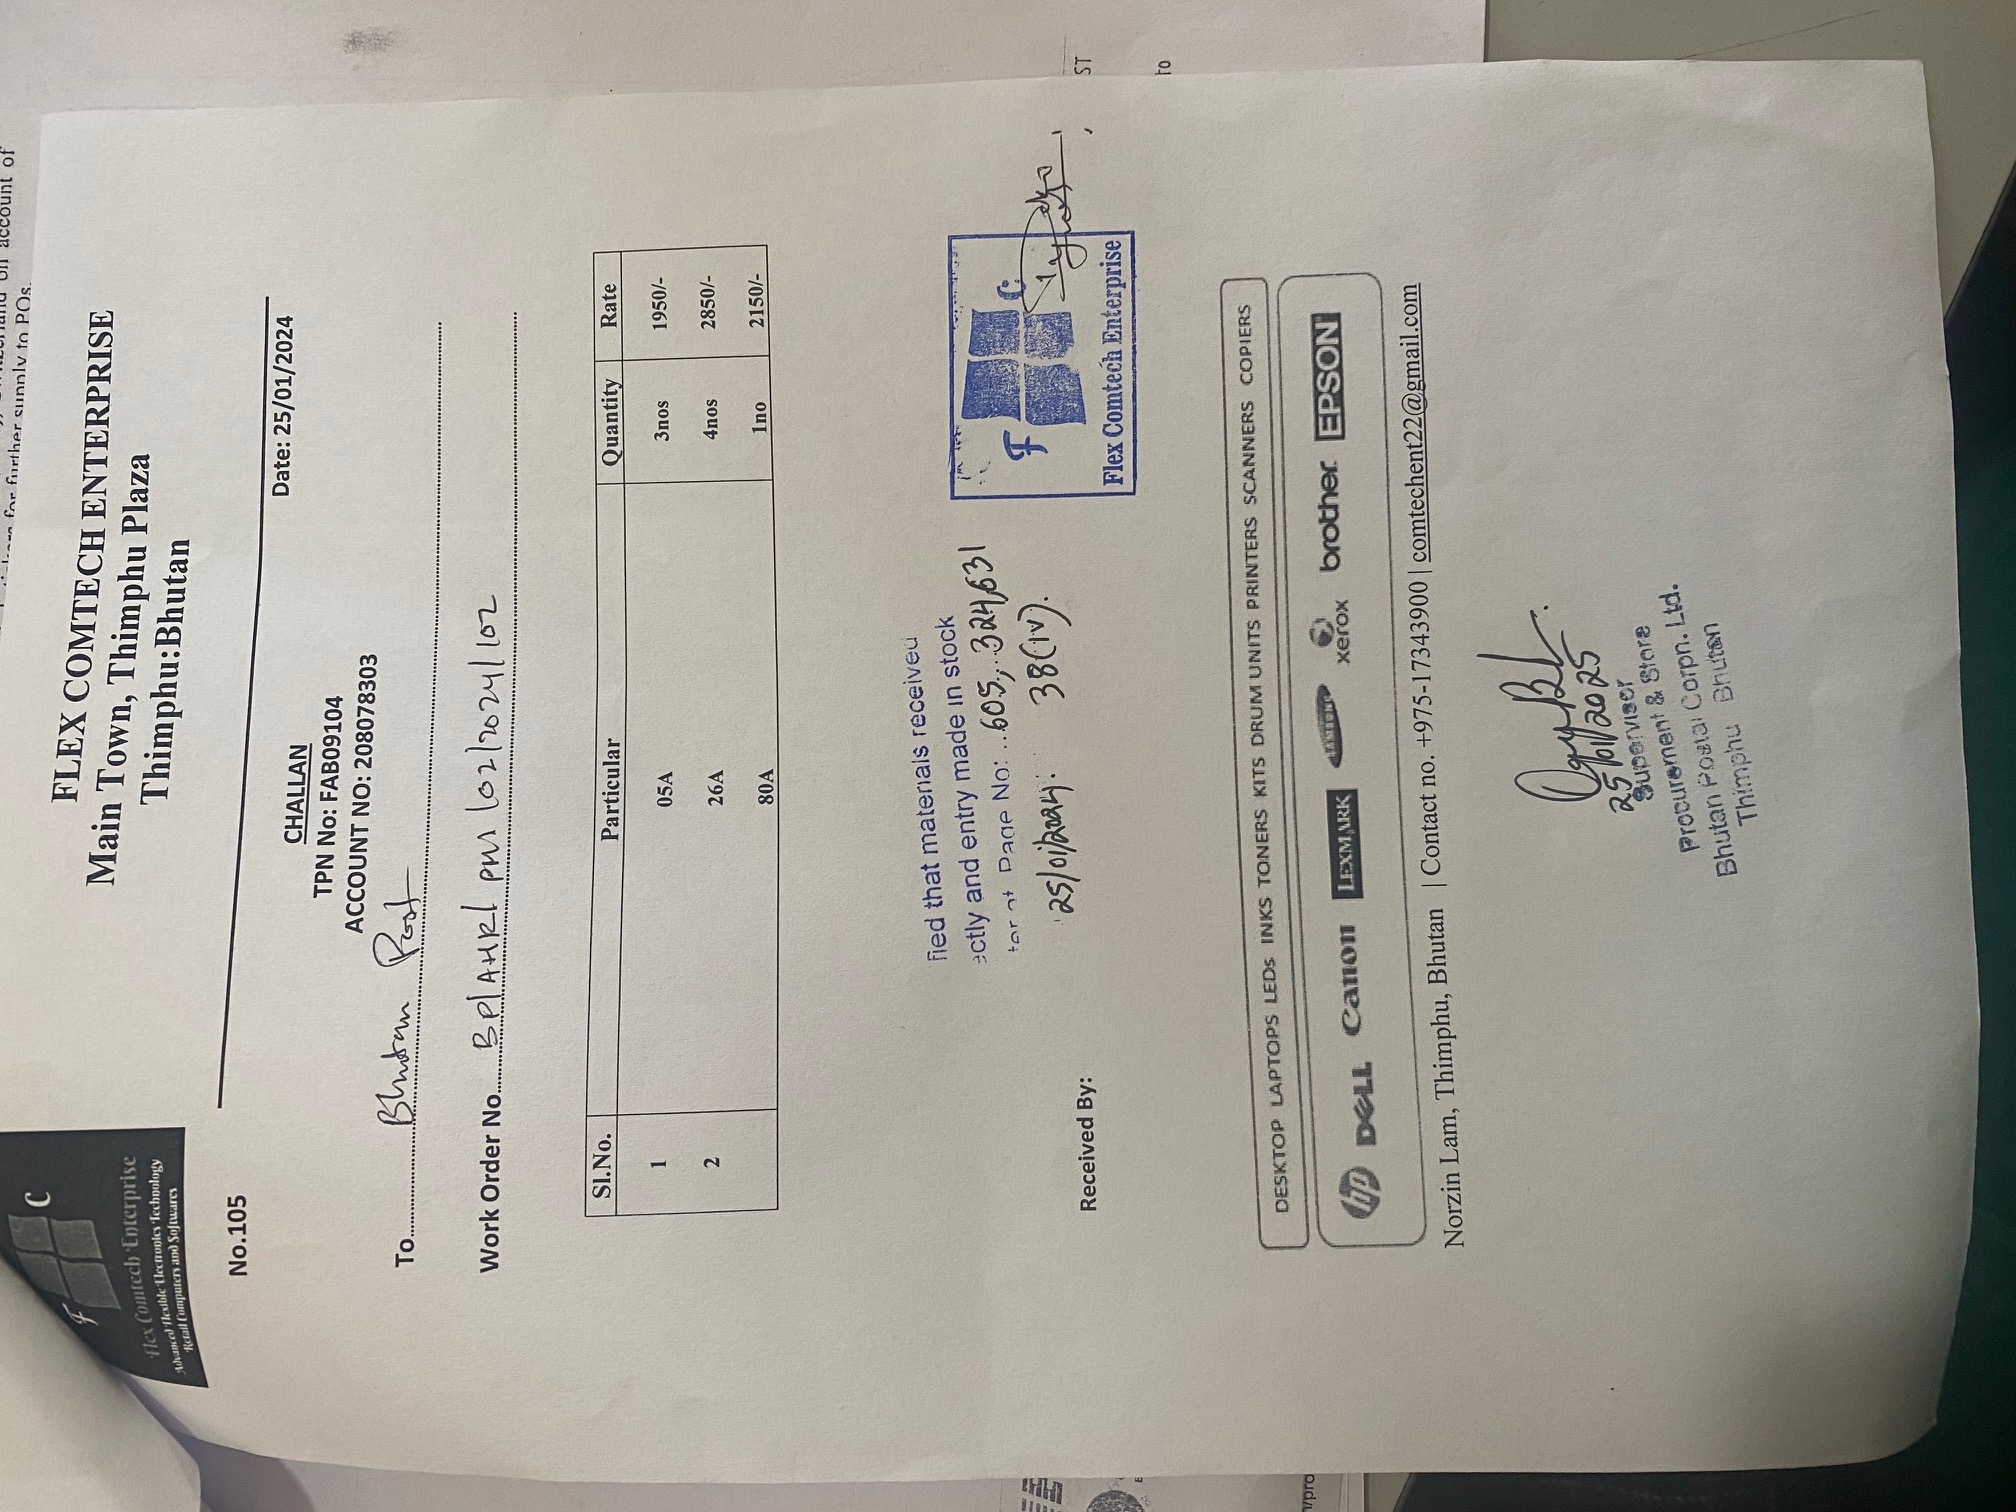 account of
for further supply to POs.
F C
Flex Comtech Enterprise
Advanced Flexible Electronics Technology
Retail Computers and Softwares
FLEX COMTECH ENTERPRISE
Main Town, Thimphu Plaza
Thimphu:Bhutan
No.105
Date: 25/01/2024
CHALLAN
TPN No: FAB09104
ACCOUNT NO: 208078303
To Bhutan Post
Work Order No BP/AHR/ PMS /02/2024/102
Sl.No. Particular Quantity Rate
1 05A 3nos 1950/-
2 26A 4nos 2850/-
80A 1no 2150/-
fied that materials received
ectly and entry made in stock
Page No: 605, 324,631
25/01/2024. 38(iv).
Received By:
F C
Flex Comtech Enterprise
ST
to
n/pro
DESKTOP LAPTOPS LEDs INKS TONERS KITS DRUM UNITS PRINTERS SCANNERS COPIERS
hp DELL Canon LEXMARK SAMSUNG xerox brother EPSON
Norzin Lam, Thimphu, Bhutan | Contact no. +975-17343900 | comtechent22@gmail.com
25/01/2025
Supervisor
Procurement & Store
Bhutan Postal Corpn. Ltd.
Thimphu Bhutan